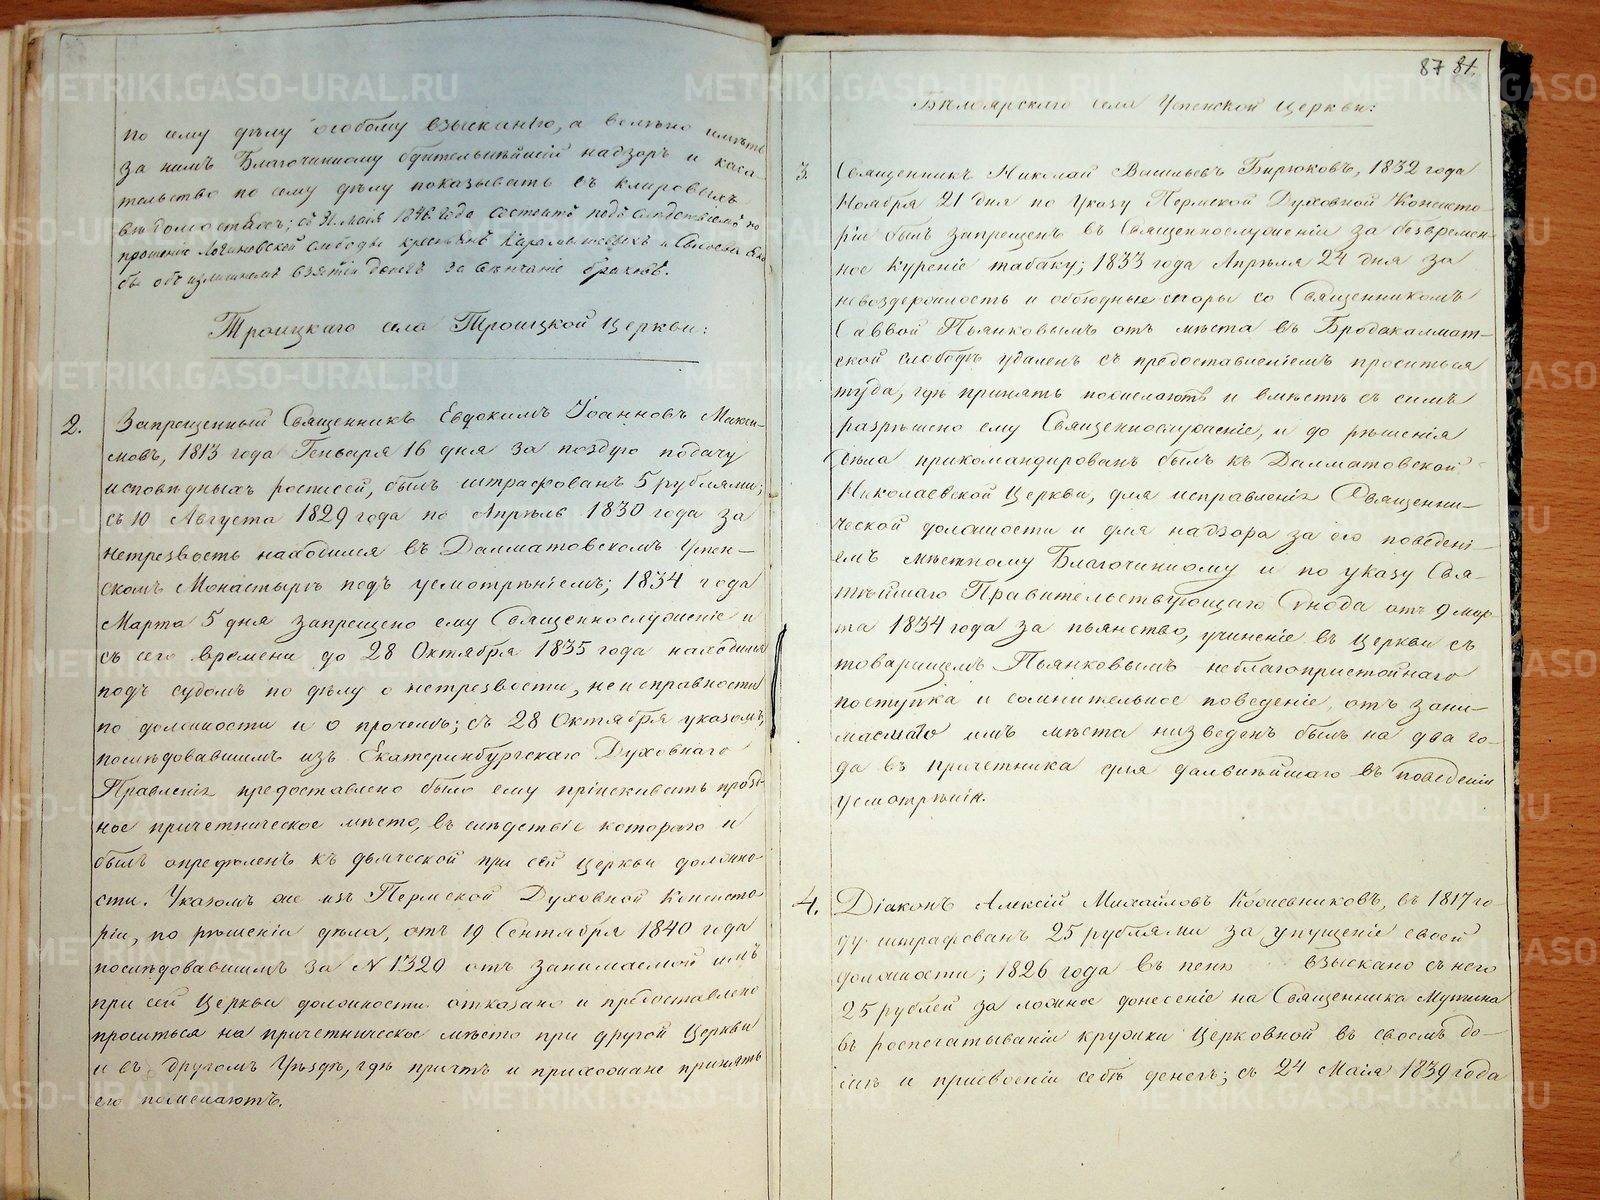 по сему дѣлу особому взысканію, а велѣно имѣть
за нимъ Благочинному бдительнѣйшій надзоръ и каса-
тельство по сему дѣлу показывать въ клировыхъ
вѣдомостяхъ; съ 31 мая 1846 года состоитъ подъ слѣдствіемъ по
прошенію слободы крестьянъ и
бы объ излишнемъ взятіи денегъ за вѣнчаніе браковъ.
Троицкаго села Троицкой Церкви:
2. Запрещенный Священникъ Евдокимъ Іоанновъ Макси-
мовъ, 1813 года Генваря 16 дня за позднюю подачу
исповѣдныхъ росписей, былъ штрафованъ 5 рублями;
съ 10 Августа 1829 года по Апрѣль 1830 года за
нетрезвость находился въ Далматовскомъ Успен-
скомъ Монастырѣ подъ усмотрѣніемъ; 1834 года
Марта 5 дня запрещено ему Священнослуженіе и
съ сего времени до 28 Октября 1835 года находился
подъ судомъ по дѣлу о нетрезвости, неисправности
по должности и о прочемъ; съ 28 Октября указомъ,
послѣдовавшимъ изъ Екатеринбургскаго Духовнаго
Правленія предоставлено было ему пріискивать празд-
ное причетническое мѣсто, въ слѣдствіе котораго и
былъ опредѣленъ къ дьяческой при сей Церкви должно-
сти. Указомъ же изъ Пермской Духовной Консисто-
ріи, по рѣшеніи дѣла, отъ 19 Сентября 1840 года
послѣдовавшимъ за N 1320 отъ занимаемой имъ
при сей Церкви должности отказано и предоставлено
проситься на причетническое мѣсто при другой Церкви
и въ другомъ Уѣздѣ, гдѣ причтъ и прихожане принять
его пожелаютъ.
87 81.
Бѣлоярскаго села Успенской Церкви:
3. Священникъ Николай Васильевъ Бирюковъ, 1832 года
Ноября 21 дня по Указу Пермской Духовной Консисто-
ріи былъ запрещенъ въ Священнослуженіи за безвремен-
ное куреніе табаку; 1833 года Апрѣля 24 дня за
невоздержность и обоюдные споры со Священникомъ
Саввой Пьянковымъ отъ мѣста въ Бродокалмат-
ской слободѣ удаленъ съ предоставленіемъ проситься
туда, гдѣ принять пожелаютъ и вмѣстѣ съ симъ
разрѣшено ему Священнослуженіе, и до рѣшенія
дѣла прикомандированъ былъ къ Далматовской
Николаевской Церкви, для исправленія Священни-
ческой должности и для надзора за его поведені-
емъ мѣстному Благочинному и по указу Свя-
тѣйшаго Правительствующаго Сѵнода отъ 9 мар-
та 1834 года за пьянство, учиненіе въ Церкви съ
товарищемъ Пьянковымъ неблагопристойнаго
поступка и сомнительное поведеніе, отъ зани-
маемаго имъ мѣста низведенъ былъ на два го-
да въ причетника для дальнѣйшаго въ поведеніи
усмотрѣнія.
4. Діаконъ Алексій Михайловъ Кожевниковъ, въ 1817 го-
ду штрафованъ 25 рублями за упущеніе своей
должности; 1826 года въ пеню взыскано съ него
25 рублей за ложное донесеніе на Священника Мутина
въ роспечатываніи кружки Церковной въ своемъ до-
мѣ и присвоеніи себѣ денегъ; съ 24 Маія 1839 года